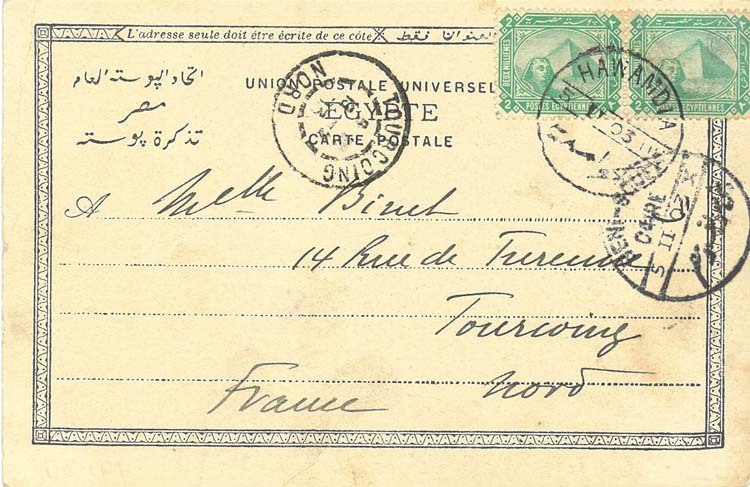 L'adresse seule doit être écrite de ce côté
العنوان فقط
اتحاد البوستة العام
مصر
تذكرة بوستة
UNION POSTALE UNIVERSELLE
ÉGYPTE
CARTE POSTALE
DEUX MILLIEMES
POSTES EGYPTIENNES
2 2
TOURCOING
NORD
HAWAMDIA
II 03
CAIRE
5 II 03
A Melle Binet
14 Rue de Turenne
Tourcoing
Nord
France